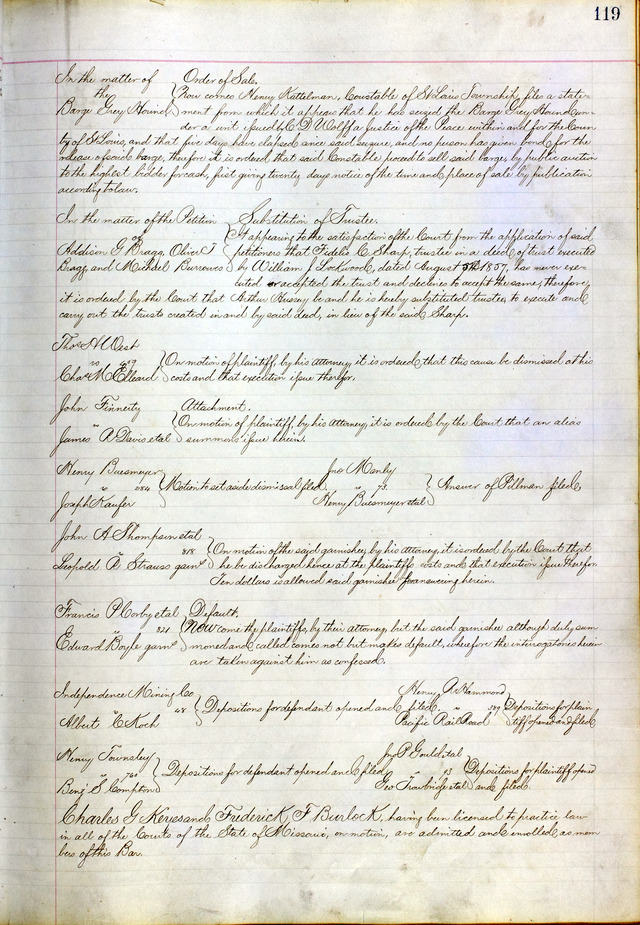 119
In the matter of Order of Sale.
the Now comes Henry Kattelman, Constable of St Louis Township, files a state-
Barge Grey Hound ment from which it appears that he has seized the Barge Grey Hound un-
der a writ issued by C D Wolff a Justice of the Peace within and for the Coun
ty of St Louis, and that five days have elapsed since said seizure, and no person has given bond for the
release of said barge, therefore it is ordered that said Constable proceed to sell said barge by public auction
to the highest bidder for cash, first giving twenty days notice of the time and place of sale by publication
according to law.
In the matter of the Petition Substitution of Trustee.
of It appearing to the satisfaction of the Court from the application of said
Addison G Bragg, Oliver T petitioners that Fidelio C Sharp, trustee in a deed of trust executed
Bragg, and Michael Burrows by William J Lockwood, dated August 5th 1857, has never exe-
cuted or accepted the trust and declines to accept the same, therefore
it is ordered by the Court that Arthur Hussey be and he is hereby substituted trustee, to execute and
carry out the trusts created in and by said deed, in lieu of the said Sharp.
Thos A West
vs On motion of plaintiff, by his attorney, it is ordered that this cause be dismissed at his
Chas M Elleard costs and that execution issue therefor.
John Finneity Attachment.
On motion of plaintiff, by his Attorney, it is ordered by the Court that an alias
James R Davis etal summons issue herein.
Henry Buesmeyer Jno Manly
284 Motion to set aside dismissal filed 72 Answer of Pillman filed
Joseph Kaufer Henry Buesmeyer etal
John A Thompson etal
818 On motion of the said garnishee, by his Attorney, it is ordered by the Court that
Leopold A Strauss garns he be discharged hence at the plaintiffs costs and that execution issue therefor
Ten dollars is allowed said garnishee for answering herein.
Francis P Corby etal Default.
821 Now come the plaintiffs, by their attorney, but the said garnishee although duly sum
Edward Boyle garns moned and called comes not but makes default, wherefore the interrogatories herein
are taken against him as confessed.
Independence Mining Co Henry A Hammond
48 Depositions for defendant opened and filed. 589 Depositions for plain
Albert C Koch Pacific Rail Road tiff opened and filed
Henry Townsley Jay P Gould etal
740 Depositions for defendant opened and filed 13 Depositions for plaintiff opened
Benj S Compton Geo Trowbridge etal and filed.
Charles G Keryes and Frederick F Burlock, having been licensed to practice law
in all of the Courts of the State of Missouri, on motion, are admitted and enrolled as mem
bers of this Bar.